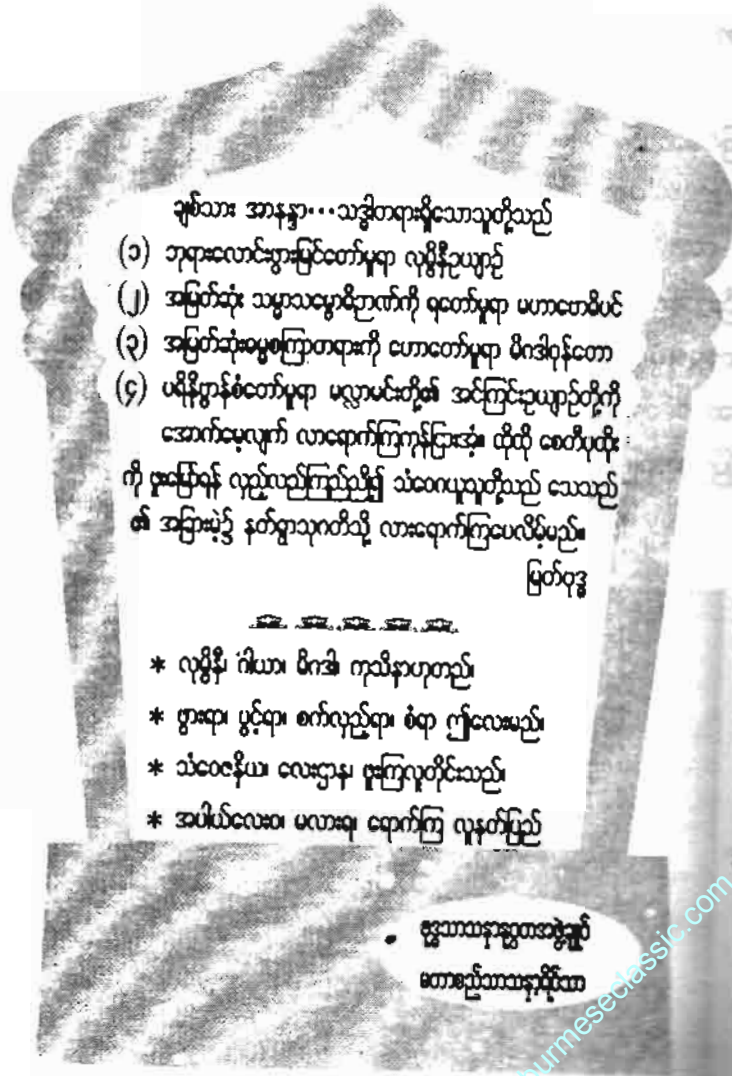 ချစ်သား အာနန္ဒာ...သဒ္ဓါတရားရှိသောသူတို့သည်
(၁) ဘုရားလောင်းဖွားမြင်တော်မူရာ လုမ္ဗိနီဥယျာဉ်
(၂) အမြတ်ဆုံး သမ္မာသမ္ဗောဓိဉာဏ်ကို ရတော်မူရာ မဟာဗောဓိပင်
(၃) အမြတ်ဆုံးဓမ္မစကြာတရားကို ဟောတော်မူရာ မိဂဒါဝုန်တော
(၄) ပရိနိဗ္ဗာန်စံတော်မူရာ မလ္လာမင်းတို့၏ အင်ကြင်းဥယျာဉ်တို့ကို
အောက်မေ့လျက် လာရောက်ကြကုန်ငြားအံ့၊ ထိုထို စေတီပုထိုး
ကို ဖူးမြော်ရန် လှည့်လည်ကြည်ညို၍ သံဝေဂယူသူတို့သည် သေသည်
၏ အခြားမဲ့၌ နတ်ရွာသုဂတိသို့ လားရောက်ကြပေလိမ့်မည်။
မြတ်ဗုဒ္ဓ
* လုမ္ဗိနီ၊ ဂါယာ၊ မိဂဒါ၊ ကုသိနာဟုတည့်၊
* ဖွားရာ၊ ပွင့်ရာ၊ စက်လှည့်ရာ၊ စံရာ ဤလေးမည်၊
* သံဝေဇနိယ၊ လေးဌာန၊ ဖူးကြလူတိုင်းသည်၊
* အပါယ်လေးဝ၊ မလားရ၊ ရောက်ကြ လူ့နတ်ပြည်
ဗုဒ္ဓသာသနာနုဂ္ဂဟအဖွဲ့ချုပ်
မဟာစည်သာသနာ့ရိပ်သာ
burmeseclassic.com